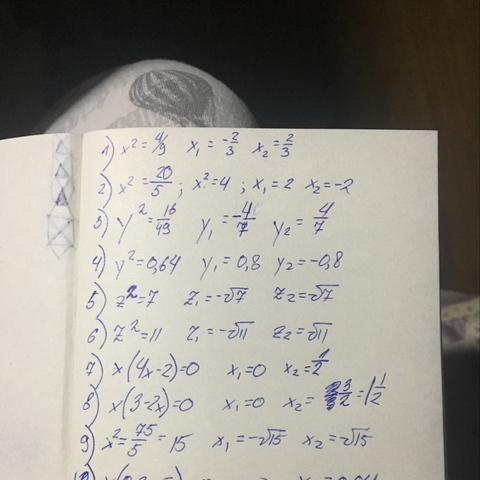 1) x² = 4/9 x₁ = -2/3 x₂ = 2/3
2) x² = 20/5 ; x² = 4 ; x₁ = 2 x₂ = -2
3) y² = 16/49 y₁ = -4/7 y₂ = 4/7
4) y² = 0,64 y₁ = 0,8 y₂ = -0,8
5) z² = 7 z₁ = -√7 z₂ = √7
6) z² = 11 z₁ = -√11 z₂ = √11
7) x(4x-2)=0 x₁=0 x₂ = 1/2
8) x(3-2x)=0 x₁=0 x₂ = 3/2 = 1 1/2
9) x² = 75/5 = 15 x₁ = -√15 x₂ = √15